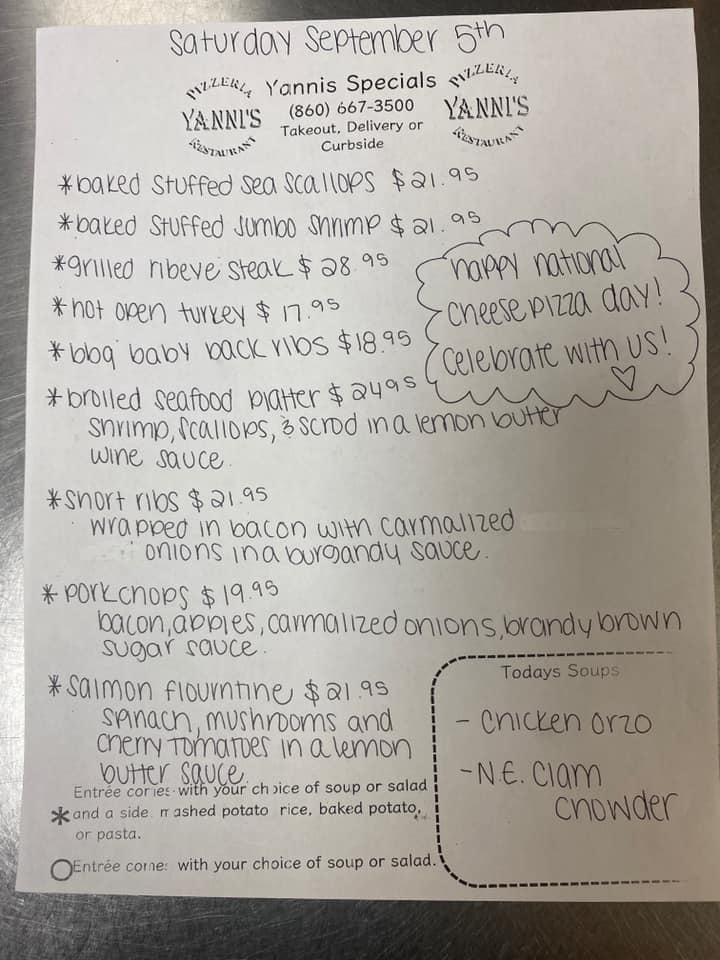 Saturday September 5th
PIZZERIA
YANNI'S
RESTAURANT
Yannis Specials
(860) 667-3500
Takeout, Delivery or
Curbside
PIZZERIA
YANNI'S
RESTAURANT
*baked stuffed sea scallops $21.95
*baked stuffed jumbo shrimp $21.95
*grilled ribeye steak $28.95
*hot open turkey $17.95
*bbq baby back ribs $18.95
happy national
cheese pizza day!
celebrate with us!
♡
*broiled seafood platter $24.95
shrimp, scallops, & scrod in a lemon butter
wine sauce.
*short ribs $21.95
wrapped in bacon with carmalized
onions in a burgandy sauce.
*porkchops $19.95
bacon, apples, carmalized onions, brandy brown
sugar sauce.
*salmon flourntine $21.95
spinach, mushrooms and
cherry tomatoes in a lemon
butter sauce.
Entrée comes with your choice of soup or salad
*and a side. mashed potato rice, baked potato,
or pasta.
Entrée comes with your choice of soup or salad.
Todays Soups
- Chicken orzo
- N.E. Clam
chowder